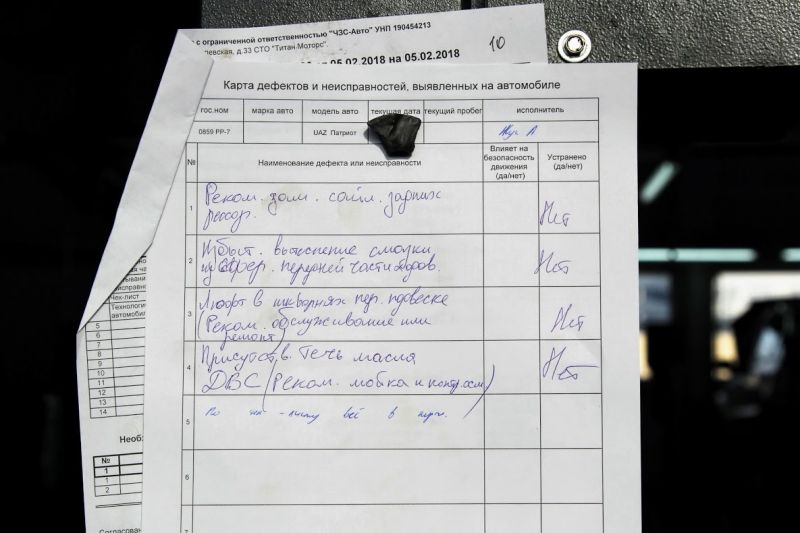 с ограниченной ответственностью "ЧЗС-Авто" УНП 190454213
левская, д.33 СТО "Титан.Моторс".
05.02.2018 на 05.02.2018
10
Карта дефектов и неисправностей, выявленных на автомобиле
гос.ном марка авто модель авто текущая дата текущий пробег исполнитель
0859 РР-7 UAZ Патриот
№ Наименование дефекта или неисправности Влияет на безопасность движения (да/нет) Устранено (да/нет)
1 Реком. зам. сайл. задних
рессор. Нет
2 Избыт. вытеснение смазки
из сфер. передней части Нет
3 Люфт в шкворнях пер. подвеске
(Реком. обслуживание или
ремонт) Нет
4 Присутств. течь масла
ДВС (Реком. мойка и контр. осм.) Нет
5 всё в
6
7
Чек-лист
Технологи
автомобиле
5
6
7
8
9
10
11
12
13
14
Необ
№
1
1
2
Согласован